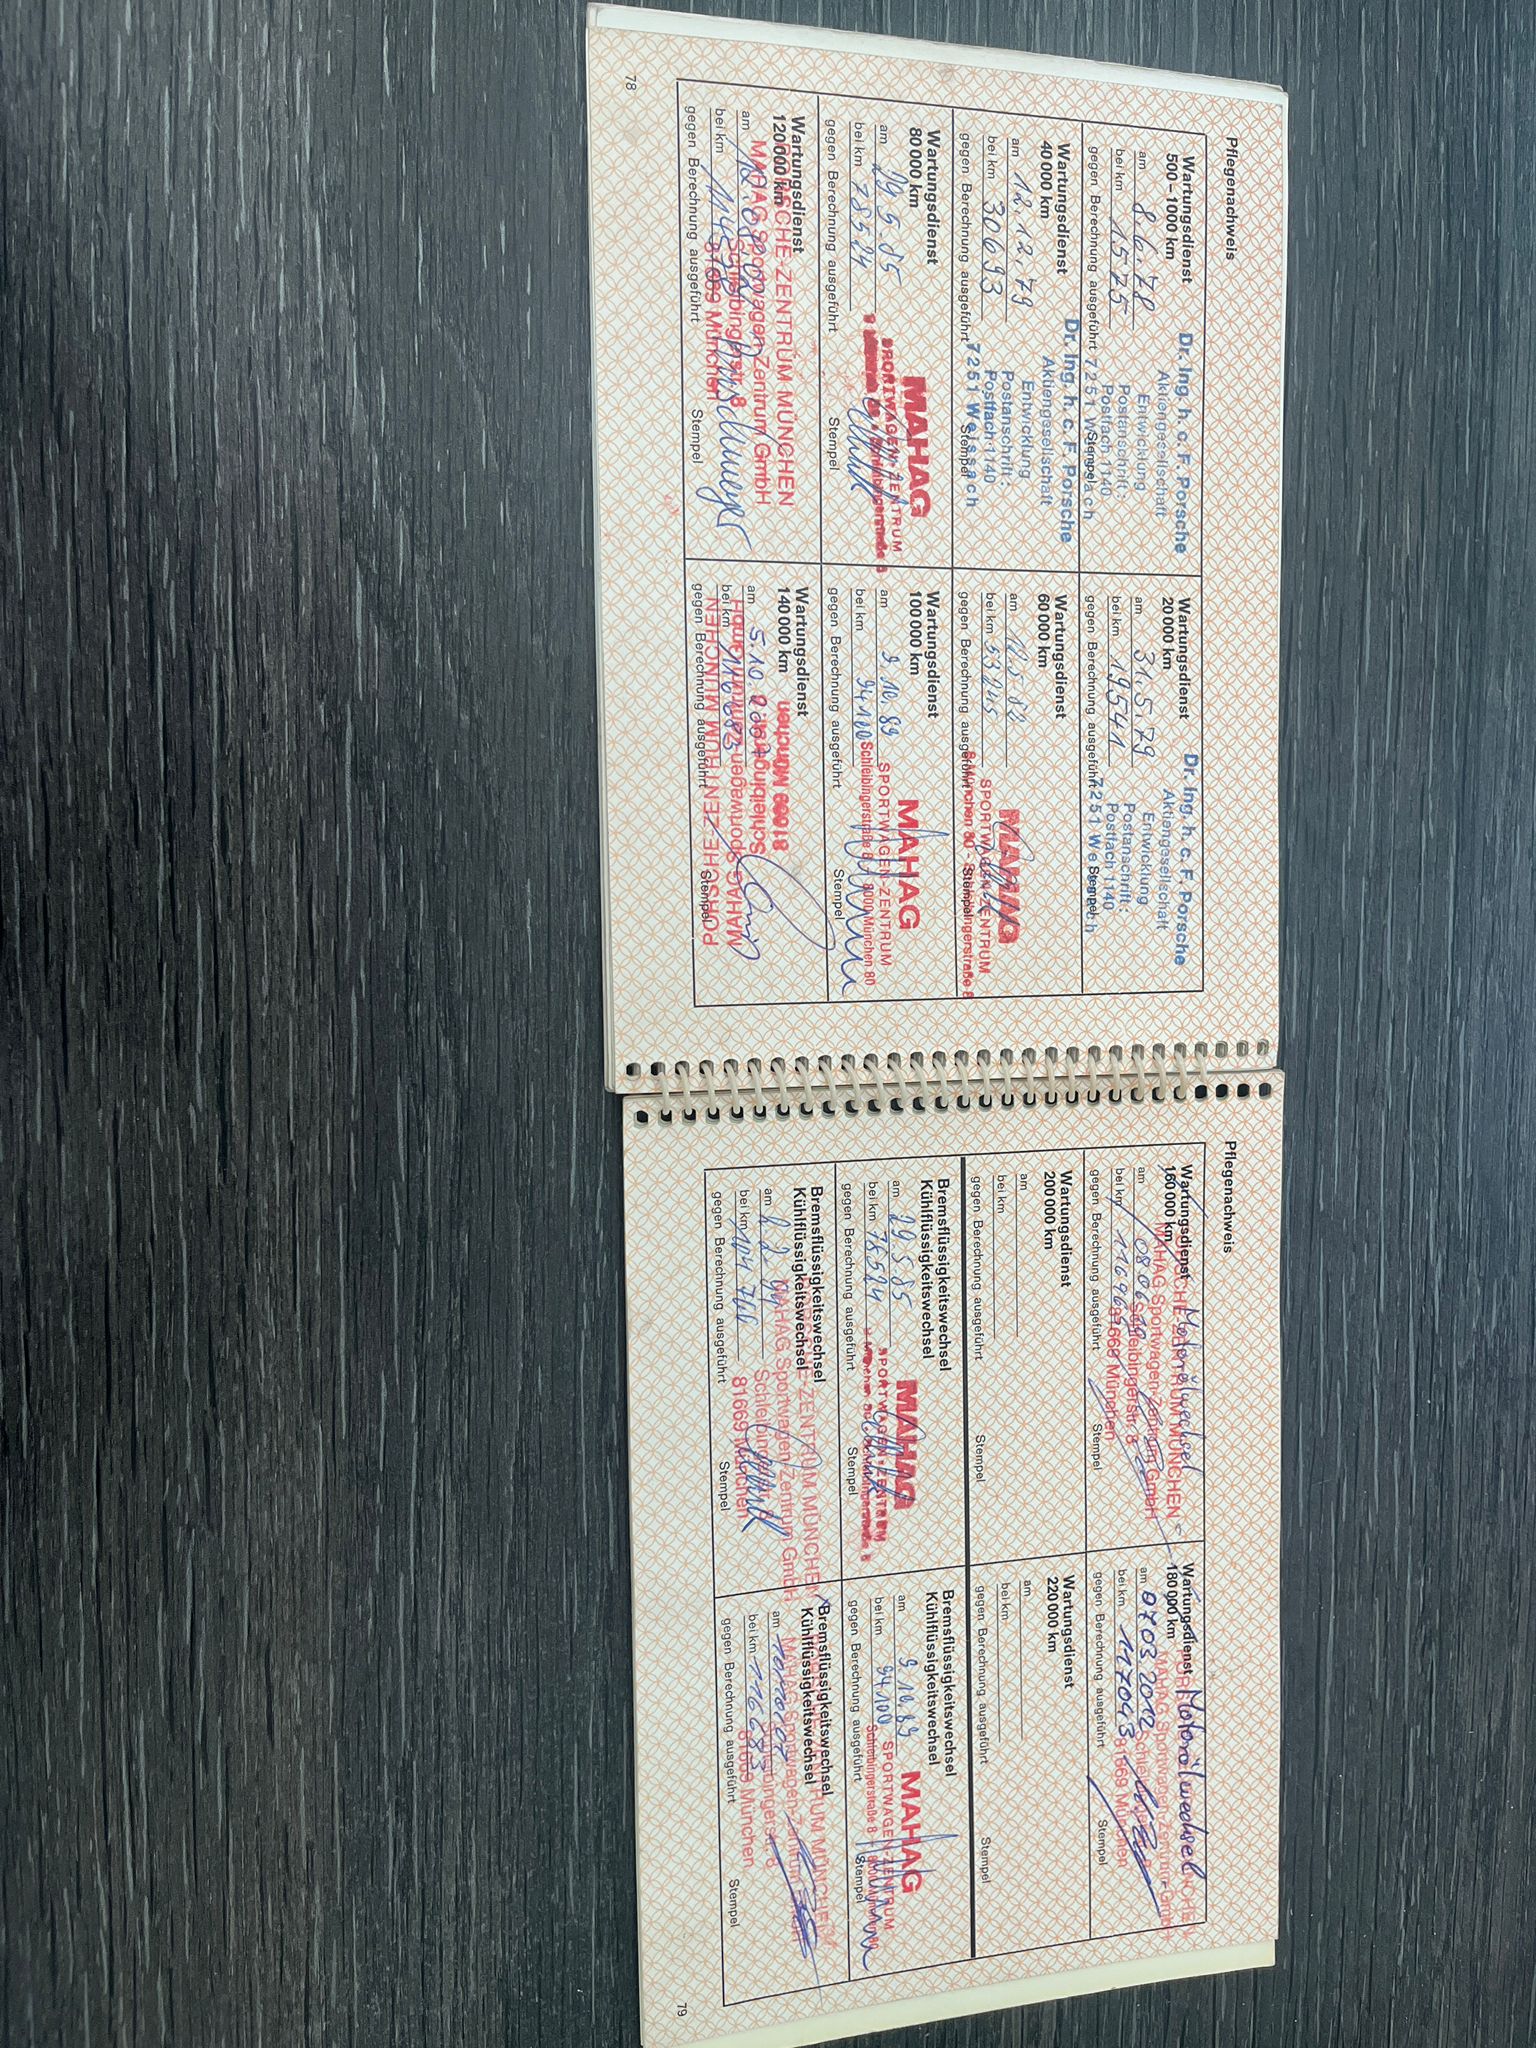 Pflegenachweis
Wartungsdienst
500–1000 km
am 8.6.78
bei km 1575
gegen Berechnung ausgeführt
Stempel
Dr. Ing. h. c. F. Porsche
Aktiengesellschaft
Entwicklung
Postanschrift:
Postfach 1140
7251 Weissach
Wartungsdienst
20 000 km
am 31.5.79
bei km 19541
gegen Berechnung ausgeführt
Stempel
Dr. Ing. h. c. F. Porsche
Aktiengesellschaft
Entwicklung
Postanschrift:
Postfach 1140
7251 Weissach
Wartungsdienst
40 000 km
am 12.12.79
bei km 30693
gegen Berechnung ausgeführt
Stempel
Dr. Ing. h. c. F. Porsche
Aktiengesellschaft
Entwicklung
Postanschrift:
Postfach 1140
7251 Weissach
Wartungsdienst
60 000 km
am
bei km 53245
gegen Berechnung ausgeführt
Stempel
MAHAG
SPORTWAGEN-ZENTRUM
8 München 80 - Schleibingerstraße 8
Wartungsdienst
80 000 km
am 29.5.85
bei km 75524
gegen Berechnung ausgeführt
Stempel
MAHAG
SPORTWAGEN-ZENTRUM
Wartungsdienst
100 000 km
am 9.10.89
bei km 94100
gegen Berechnung ausgeführt
Stempel
MAHAG
SPORTWAGEN-ZENTRUM
Schleibingerstraße 8 - 8000 München 80
Wartungsdienst
120 000 km
am
bei km
gegen Berechnung ausgeführt
Stempel
PORSCHE-ZENTRUM MÜNCHEN
MAHAG Sportwagen-Zentrum GmbH
Schleibingerstr. 8
81669 München
Wartungsdienst
140 000 km
am 5.10.2007
bei km 116683
gegen Berechnung ausgeführt
Stempel
PORSCHE-ZENTRUM MÜNCHEN
MAHAG Sportwagen-Zentrum GmbH
Schleibingerstr. 8
81669 München
78
Pflegenachweis
Wartungsdienst Motorölwechsel
160 000 km
am
bei km
gegen Berechnung ausgeführt
Stempel
PORSCHE-ZENTRUM MÜNCHEN
MAHAG Sportwagen-Zentrum GmbH
Schleibingerstr. 8
81669 München
Wartungsdienst Motorölwechsel
180 000 km
am 07 03 2012
bei km 117043
gegen Berechnung ausgeführt
Stempel
MAHAG Sportwagen-Zentrum GmbH
81669 München
Wartungsdienst
200 000 km
am
bei km
gegen Berechnung ausgeführt
Stempel
Wartungsdienst
220 000 km
am
bei km
gegen Berechnung ausgeführt
Stempel
Bremsflüssigkeitswechsel
Kühlflüssigkeitswechsel
am 29.5.85
bei km 75524
gegen Berechnung ausgeführt
Stempel
MAHAG
SPORTWAGEN-ZENTRUM
Bremsflüssigkeitswechsel
Kühlflüssigkeitswechsel
am 9.10.89
bei km 94100
gegen Berechnung ausgeführt
Stempel
MAHAG
SPORTWAGEN-ZENTRUM
Schleibingerstraße 8 - 8000 München 80
Bremsflüssigkeitswechsel
Kühlflüssigkeitswechsel
am
bei km 104700
gegen Berechnung ausgeführt
Stempel
PORSCHE-ZENTRUM MÜNCHEN
MAHAG Sportwagen-Zentrum GmbH
Schleibingerstr. 8
81669 München
Bremsflüssigkeitswechsel
Kühlflüssigkeitswechsel
am
bei km 116683
gegen Berechnung ausgeführt
Stempel
PORSCHE-ZENTRUM MÜNCHEN
MAHAG Sportwagen-Zentrum GmbH
Schleibingerstr. 8
81669 München
79